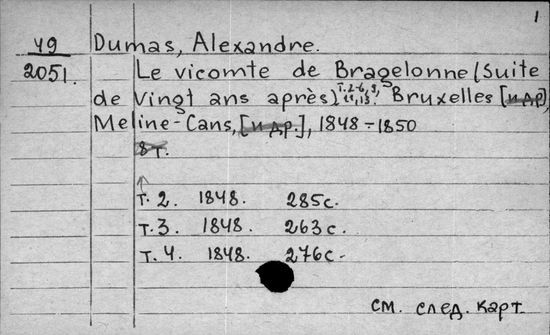 1
49 Dumas, Alexandre.
2051. Le vicomte de Bragelonne (Suite
de Vingt ans après) т.2-6,8, 11,13. Bruxelles [и др],
Meline-Cans, [и др.], 1848-1850
8т.
т. 2. 1848. 285с.
т. 3. 1848. 263с.
т. 4. 1848. 276с.
см. след. карт.